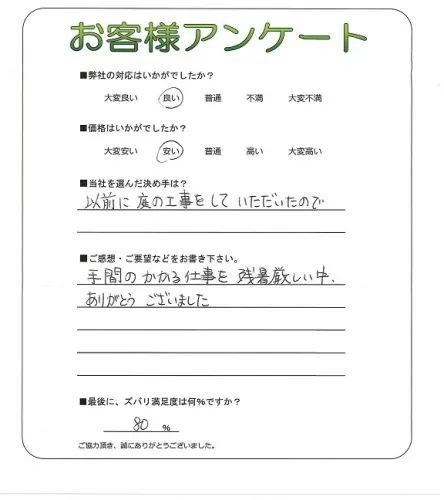 お客様アンケート
■弊社の対応はいかがでしたか?
大変良い 良い 普通 不満 大変不満
■価格はいかがでしたか?
大変安い 安い 普通 高い 大変高い
■当社を選んだ決め手は?
以前に庭の工事をしていただいたので
■ご感想・ご要望などをお書き下さい。
手間のかかる仕事を残暑厳しい中、
ありがとうございました
■最後に、ズバリ満足度は何%ですか?
80 %
ご協力頂き、誠にありがとうございました。